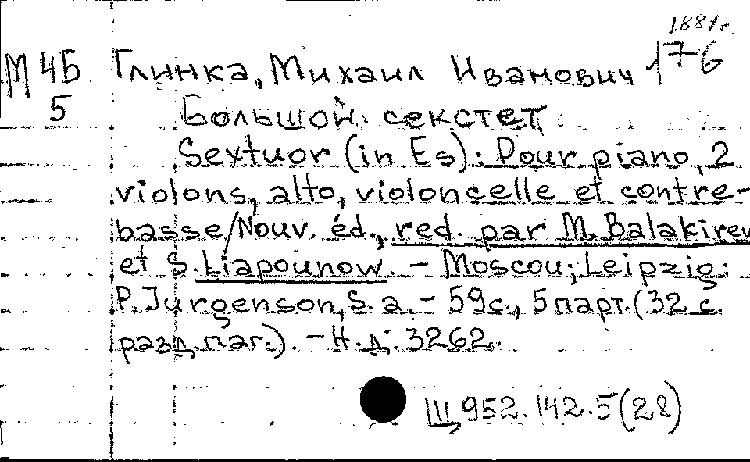 1881 г.
М 4Б Глинка, Михаил Иванович 176
5 Большой секстет
Sextuor (in Es): Pour piano, 2
violons, alto, violoncelle et contre-
basse/Nouv. éd., red. par M. Balakirew
et S. Liapounow. – Moscou; Leipzig:
P. Jurgenson, S. a. – 59с., 5 парт. (32 с.
разд. паг.). – Н. д.: 3262.
Щ 952.142.5(28)